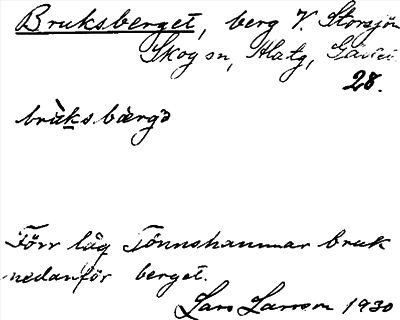 Bruksberget, berg V. Storsjön
Skog sn, Hlstg, Gävle.
28.
brùks bærgə
Förr låg Tönnshammar bruk
nedanför berget.
Lars Larsson 1930